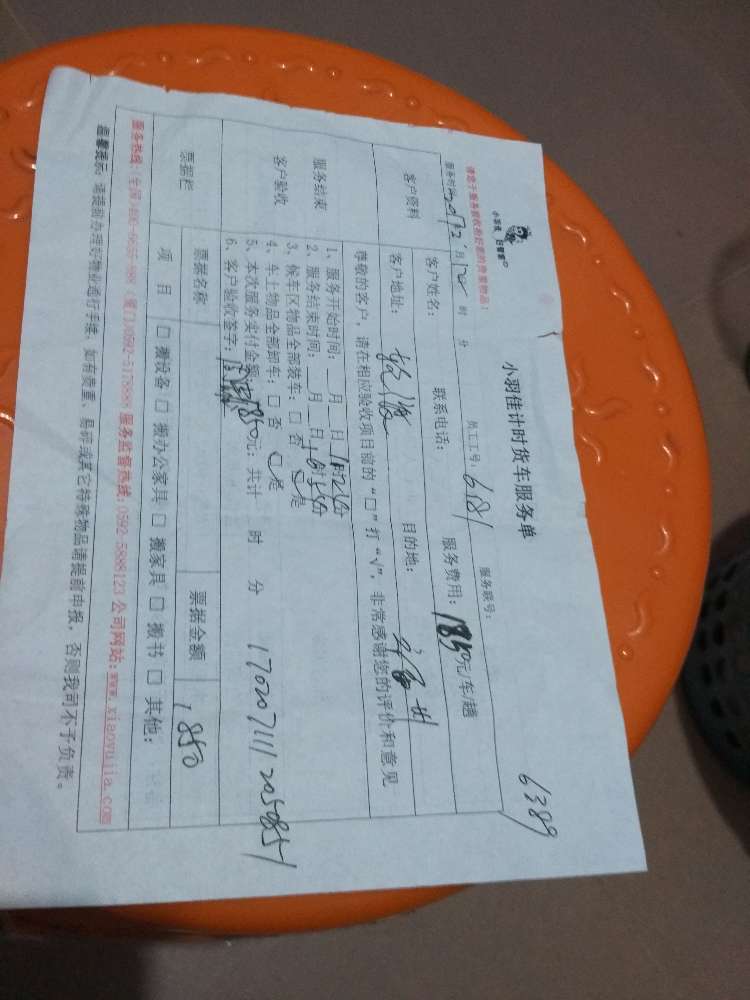 小羽佳计时货车服务单
6389
小羽佳 白管家
请您于服务前收拾好您的贵重物品:
员工工号: 6181 服务联号:
服务时间: 月 时 分
客户资料
客户姓名: 联系电话: 服务费用: 1850元/车/趟
客户地址: 目的地:
尊敬的客户, 请在相应验收项目前的“□”打“√”, 非常感谢您的评价和意见
服务结束
客户验收
1、服务开始时间: 月 日 时 分
2、服务结束时间: 月 日 时 分
3、候车区物品全部装车: □否 □是
4、车上物品全部卸车: □否 □是
5、本次服务实付金额 1850元; 共计 时 分
6、客户验收签字:
17020711112050851
票据栏
票据名称 票据金额 1850
项 目 □ 搬设备 □ 搬办公家具 □ 搬家具 □ 搬书 □ 其他:
服务热线: 全国 (厦门)0592-5178888 服务监督热线: 0592-5888123 公司网站: www.xiaoyujia.com
温馨提示: 请提前办理好物品通行手续, 如有贵重、易碎或其它特殊物品请提前申报, 否则我司不予负责。